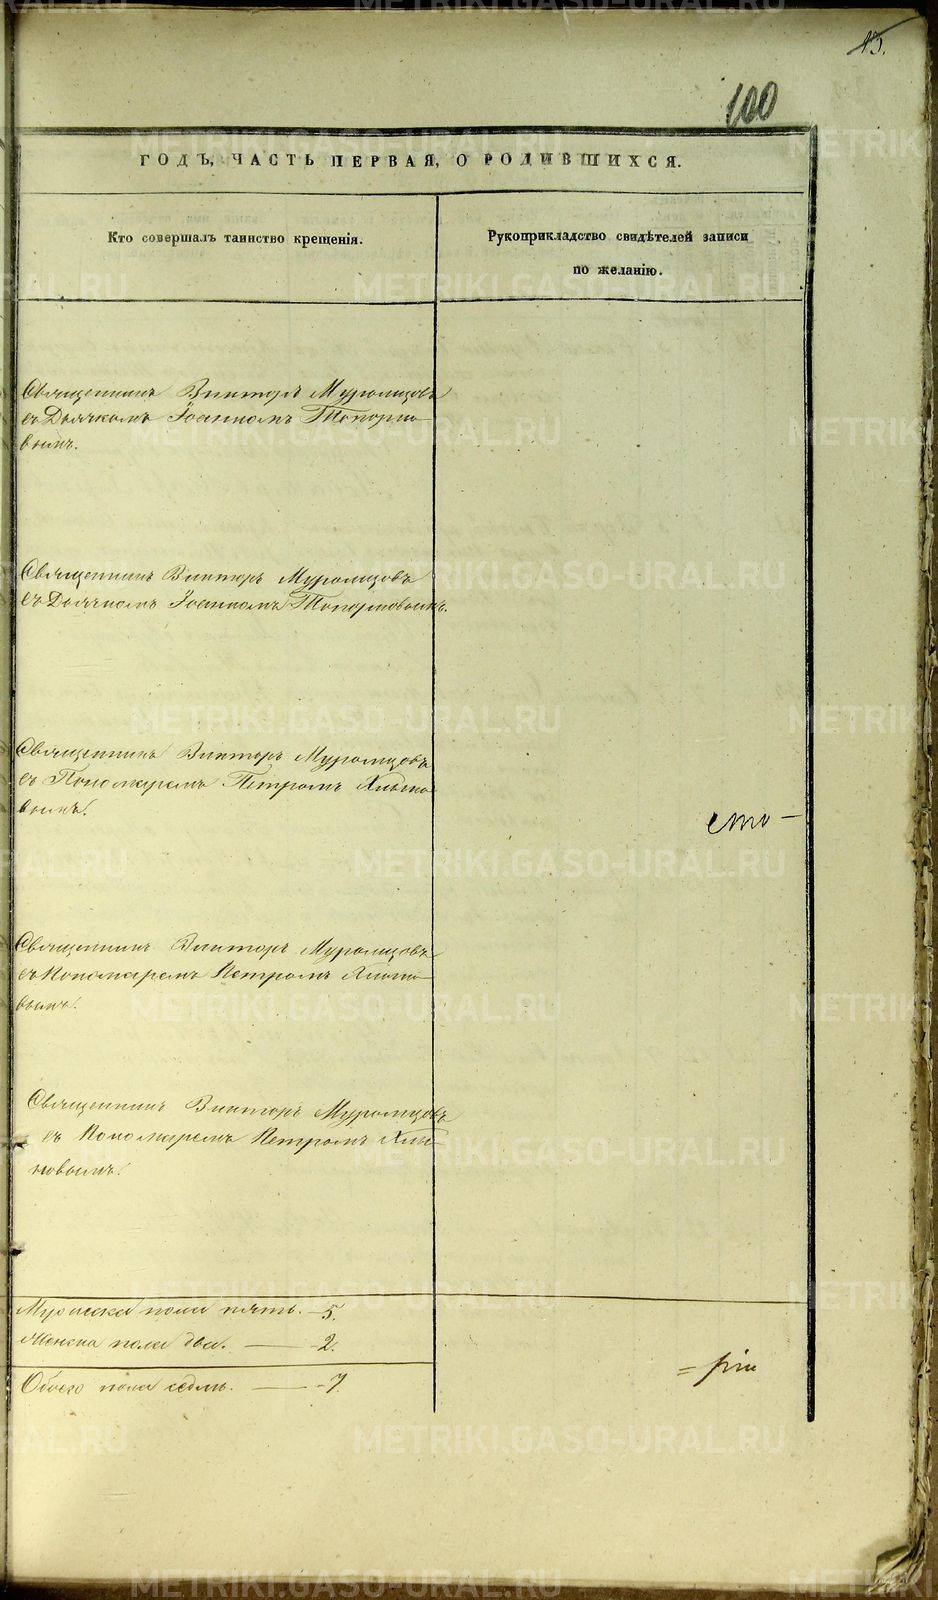 15.
100
ГОДЪ, ЧАСТЬ ПЕРВАЯ, О РОДИВШИХСЯ.
Кто совершалъ таинство крещенія.
Рукоприкладство свидѣтелей записи
по желанію.
Священникъ Викторъ Муромцовъ
съ Дьячкомъ Іоанномъ Топорко-
вымъ.
Священникъ Викторъ Муромцовъ
съ Дьячкомъ Іоанномъ Топорковымъ.
Священникъ Викторъ Муромцовъ
съ Пономаремъ Петромъ
вымъ.
сто —
Священникъ Викторъ Муромцовъ
съ Пономаремъ Петромъ
вымъ.
Священникъ Викторъ Муромцовъ
съ Пономаремъ Петромъ Хлы-
новымъ.
Мужеска пола пять. — 5.
Женска пола два. — 2.
Обоего пола седмь. — 7.
METRIKI.GASO-URAL.RU